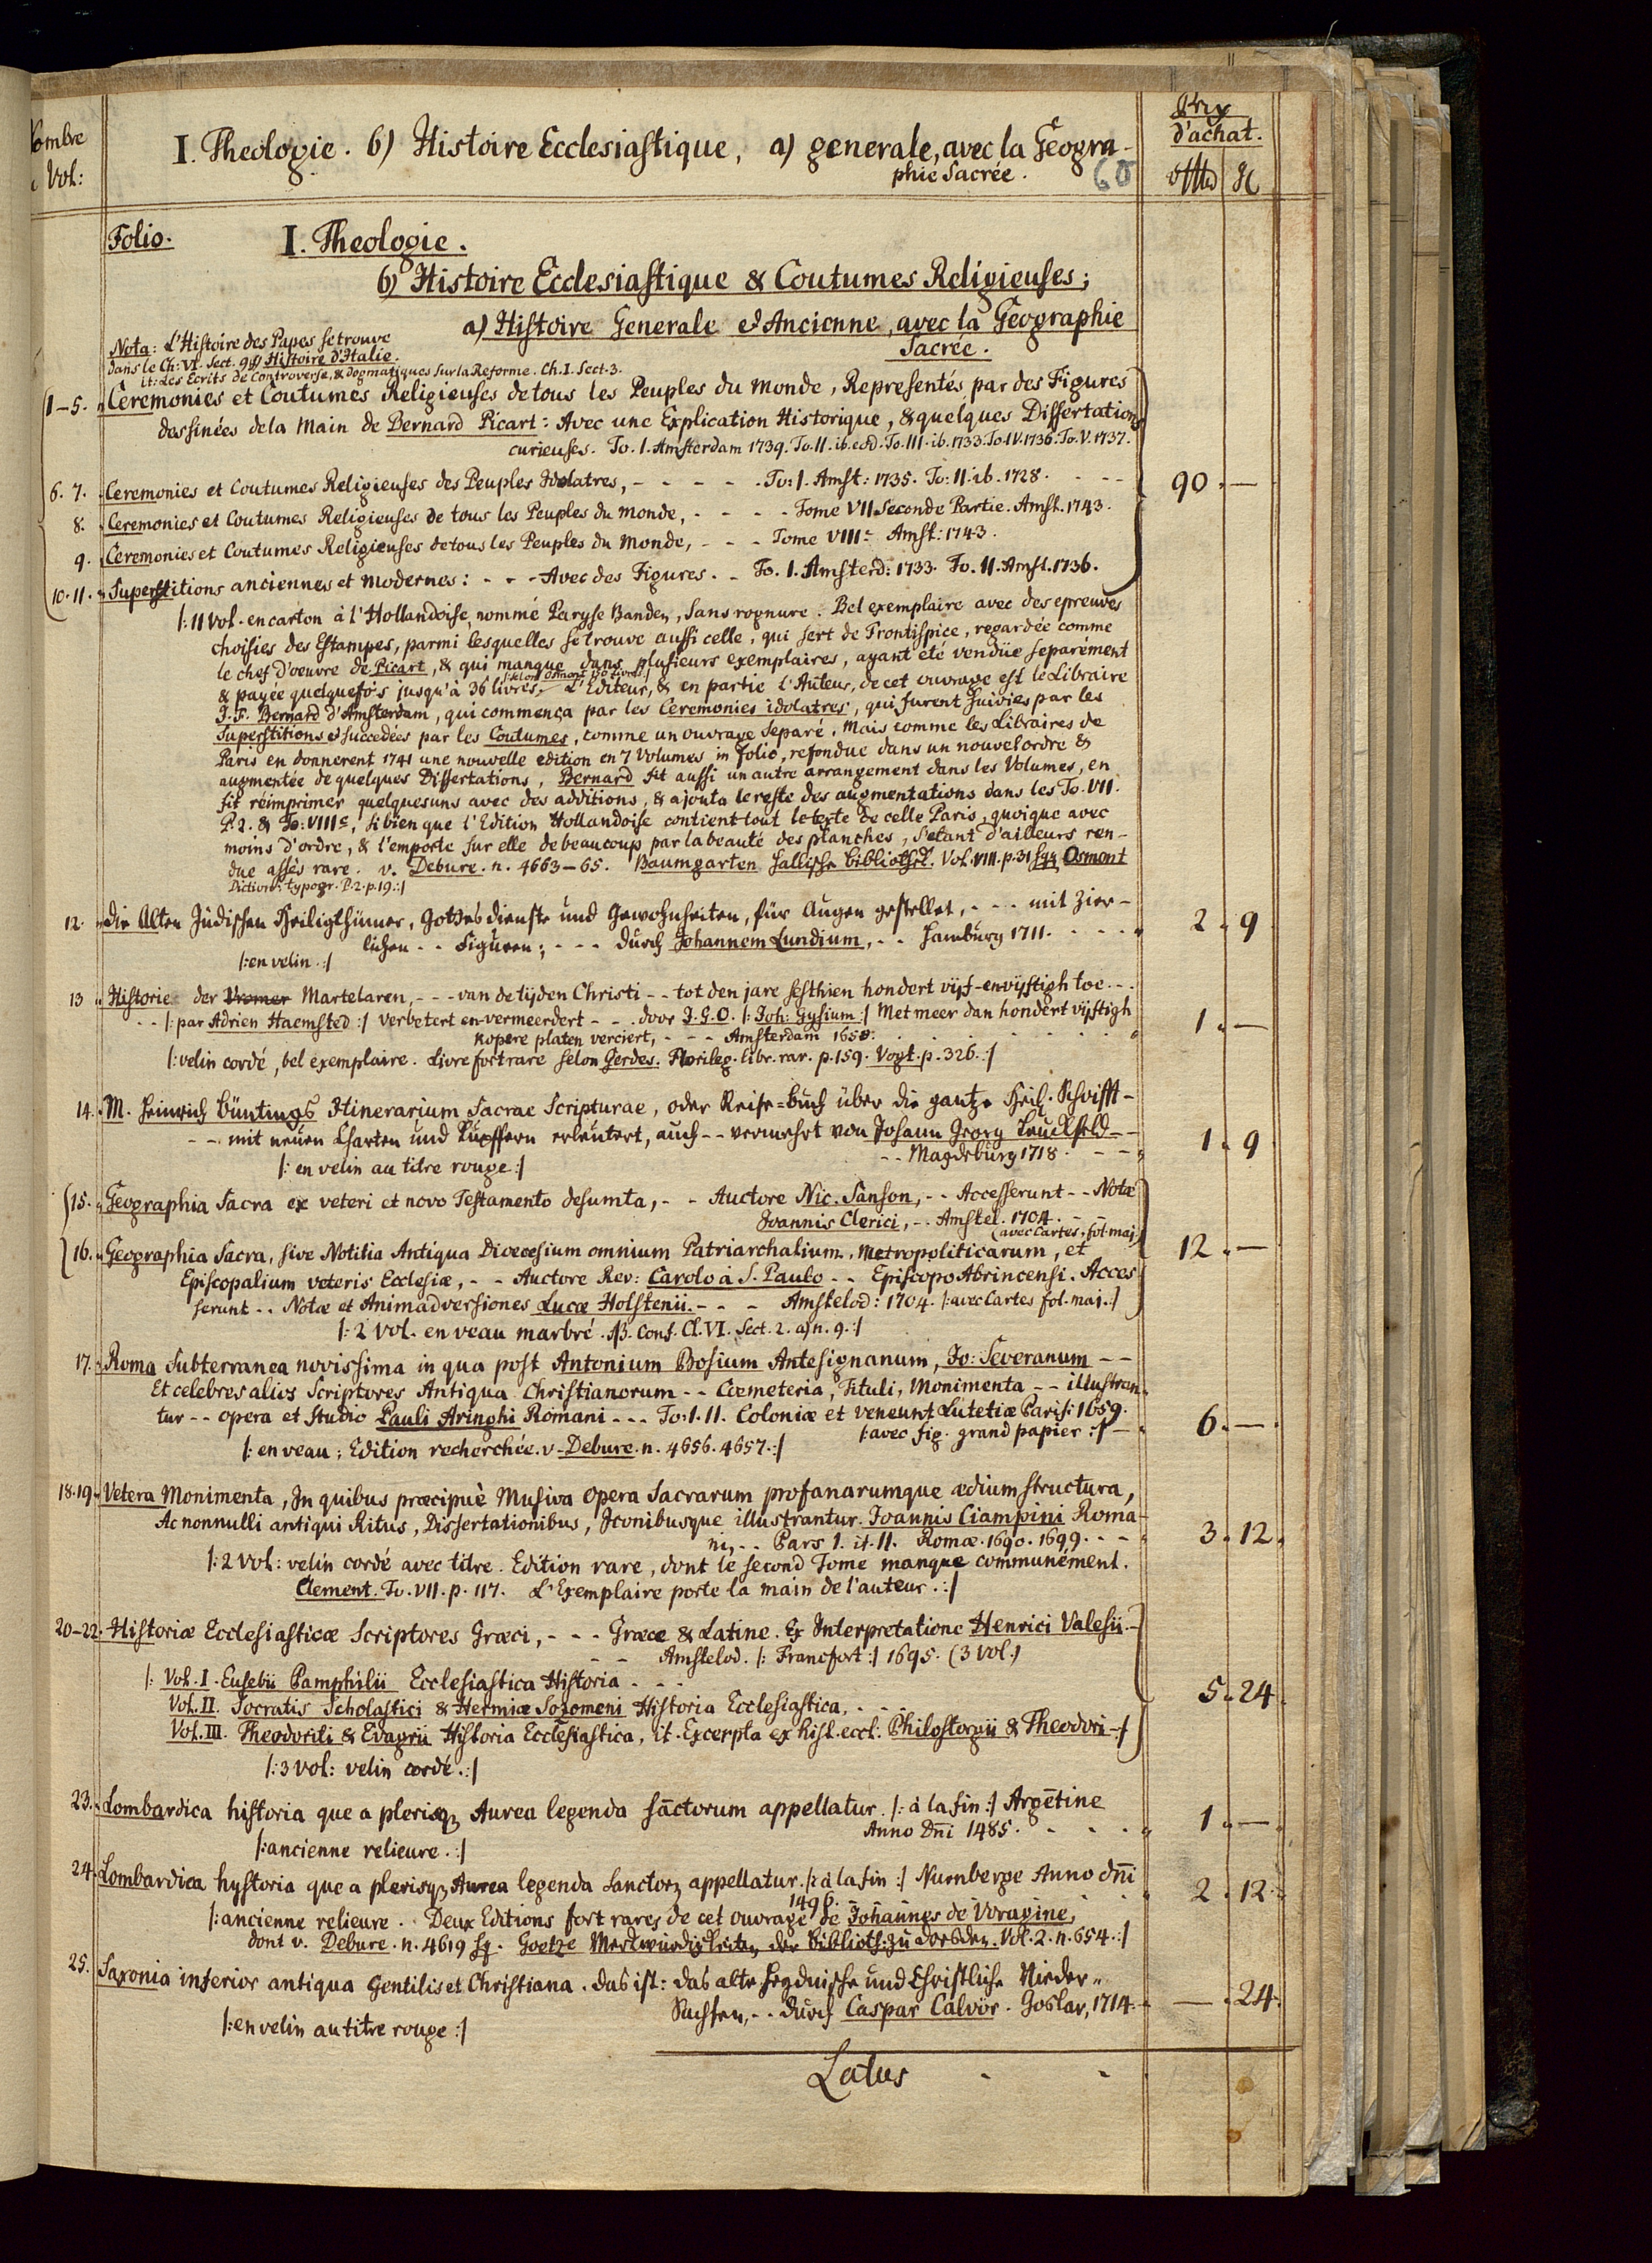 ombre
Vol:
I. Theologie. 6) Histoire Ecclesiastique, a) generale, avec la Geogra-
phie Sacrée.
60
Prix
d'achat.
Folio.
I. Theologie.
6) Histoire Ecclesiastique & Coutumes Religieuses;
a) Histoire Generale & Ancienne, avec la Geographie
Sacrée.
Nota: L'Histoire des Papes se trouve
dans le Ch: VI. Sect. 9 Histoire d'Italie.
it: Les Ecrits de Controverse, & dogmatiques sur la Reforme. Ch. I. Sect. 3.
1-5. Ceremonies et Coutumes Religieuses de tous les Peuples du Monde, Representés par des Figures
dessinées de la Main de Bernard Picart: Avec une Explication Historique, & quelques Dissertations
curieuses. To. I. Amsterdam 1739. To. II. ib. eod. To. III. ib. 1733. To. IV. 1736. To. V. 1737.
6. 7. Ceremonies et Coutumes Religieuses des Peuples Idolatres, - - - - - To: I. Amst: 1735. To: II. ib. 1728. - - - 90. —
8. Ceremonies et Coutumes Religieuses de tous les Peuples du Monde, - - - - Tome VII Seconde Partie. Amst. 1743.
9. Ceremonies et Coutumes Religieuses de tous les Peuples du Monde, - - - Tome VIII. Amst: 1743.
10. 11. Superstitions anciennes et modernes: - - - Avec des Figures. - To. I. Amsterd: 1733. To. II. Amst. 1736.
|: 11 Vol. en carton à l'Hollandoise, nommé Paryse Banden, sans rognure. Bel exemplaire avec des epreuves
choisies des Estampes, parmi lesquelles se trouve aussi celle, qui sert de Frontispice, regardée comme
le chef d'oeuvre de Picart, & qui manque dans plusieurs exemplaires, ayant eté vendüe separément
|: selon Osmont 150 Livres :|
& payée quelquefo's jusqu'à 36 livres. L'Editeur, & en partie l'Auteur, de cet ouvrage est le Libraire
J. F. Bernard d'Amsterdam, qui commença par les Ceremonies idolatres, qui furent suivies par les
Superstitions & succedées par les Coutumes, comme un ouvrage separé. Mais comme les Libraires de
Paris en donnerent 1741 une nouvelle edition en 7 Volumes in folio, refondue dans un nouvel ordre &
augmentée de quelques Dissertations, Bernard fit aussi un autre arrangement dans les Volumes, en
fit réimprimer quelquesuns avec des additions, & ajouta le reste des augmentations dans les To. VII.
P. 2. & To: VIII, si bien que l'Edition Hollandoise contient tout le texte de celle Paris, quoique avec
moins d'ordre, & l'emporte sur elle de beaucoup par la beauté des planches, s'etant d'ailleurs ren-
due assés rare. v. Debure. n. 4663-65. Baumgarten Hallische Bibliothek. Vol. VIII. p. 31 sqq Osmont
Diction: typogr. P. 2. p. 19. :|
12. Die Alten Jüdischen Heiligthümer, Gottesdienste und Gewohnheiten, für Augen gestellet, - - - mit Zier-
lichen - - Figuren; - - - durch Johannem Lundium, - - Hamburg 1711. - - - - 2. 9
|: en velin. :|
13 Historie der Vromer Martelaren, - - - van de tijden Christi - - tot den jare sesthien hondert vijf-en-vijftigh toe. - -
- - |: par Adrien Haemsted :| verbetert en vermeerdert - - - door J. G. O. |: Joh: Gysium :| Met meer dan hondert vijftigh
kopere platen verciert, - - - Amsterdam 1658. - - - - 1. —
|: velin cordé, bel exemplaire. Livre fort rare selon Gerdes. Florileg. libr. rar. p. 159. Vogt. p. 326. :|
14. M. Heinrich Büntings Itinerarium Sacrae Scripturae, oder Reise=Buch über die gantze Heil. Schrifft-
- - mit neuen Charten und Kupffern erleutert, auch - - vermehrt von Johann Georg Leuckfeld - -
- - Magdeburg 1718. - - - 1. 9
|: en velin au titre rouge :|
15. Geographia Sacra ex veteri et novo Testamento desumta, - - Auctore Nic. Sanson, - - Accesserunt - - Notæ
Joannis Clerici, - - Amstel. 1704. - -
(avec Cartes, fol. maj.)
16. Geographia Sacra, sive Notitia Antiqua Dioecesium omnium Patriarchalium, Metropoliticarum, et 12. —
Episcopalium veteris Ecclesiæ, - - Auctore Rev: Carolo à S. Paulo - - Episcopo Abrincensi. Acces
serunt - - Notæ et Animadversiones Lucæ Holstenii. - - - Amstelod: 1704. |: avec Cartes fol. maj. :|
|: 2 Vol. en veau marbré. NB. Conf. Cl. VI. Sect. 2. a) n. 9. :|
17. Roma Subterranea novissima in qua post Antonium Bosium Antesignanum, Jo: Severanum - -
Et celebres alios Scriptores Antiqua Christianorum - - Coemeteria, Tituli, Monimenta - - illustran
tur - - opera et studio Pauli Aringhi Romani - - - To: I. II. Coloniæ et veneunt Lutetiæ Paris: 1659.
|: avec fig. grand papier :| - 6. —
|: en veau; Edition recherchée. v. Debure. n. 4656. 4657. :|
18. 19. Vetera Monimenta, In quibus præcipuè Musiva Opera Sacrarum profanarumque ædium structura,
Ac nonnulli antiqui Ritus, Dissertationibus, Iconibusque illustrantur. Joannis Ciampini Roma-
ni, - - Pars I. it. II. Romæ. 1690. 1699. - - - 3. 12.
|: 2 Vol: velin cordé avec titre. Edition rare, dont le second Tome manque communément.
Clement. To. VII. p. 117. L'Exemplaire porte la main de l'auteur. :|
20-22. Historiæ Ecclesiasticæ Scriptores Græci, - - - Græce & Latine. Ex Interpretatione Henrici Valesii. -
- - Amstelod. |: Francfort :| 1695. (3 Vol.)
|: Vol. I. Eusebii Pamphilii Ecclesiastica Historia - - -
Vol. II. Socratis Scholastici & Hermiæ Sozomeni Historia Ecclesiastica, - - - 5. 24.
Vol. III. Theodoriti & Evagrii Historia Ecclesiastica, it. Excerpta ex hist. eccl. Philostorgii & Theodori :|
|: 3 Vol: velin cordé. :|
23. Lombardica historia que a plerisq₃ Aurea legenda sāctorum appellatur. |: à la fin :| Argētine
Anno Dñi 1485. - - - - 1. —
|: ancienne relieure. :|
24. Lombardica hystoria que a plerisq₃ Aurea legenda sanctor₃ appellatur. |: à la fin :| Nurnberge Anno dñi
1496. - - - 2. 12.
|: ancienne relieure. Deux Editions fort rares de cet ouvrage de Johannes de Voragine,
dont v. Debure. n. 4619 sq. Goetze Merkwürdigkeiten der Biblioth: zu Dresden. Vol. 2. n. 654. :|
25. Saxonia inferior antiqua Gentilis et Christiana. Das ist: das alte Heydnische und Christliche Nieder-
Sachsen, - - durch Caspar Calvör. Goslar, 1714. - — . 24.
|: en velin au titre rouge :|
Latus - -